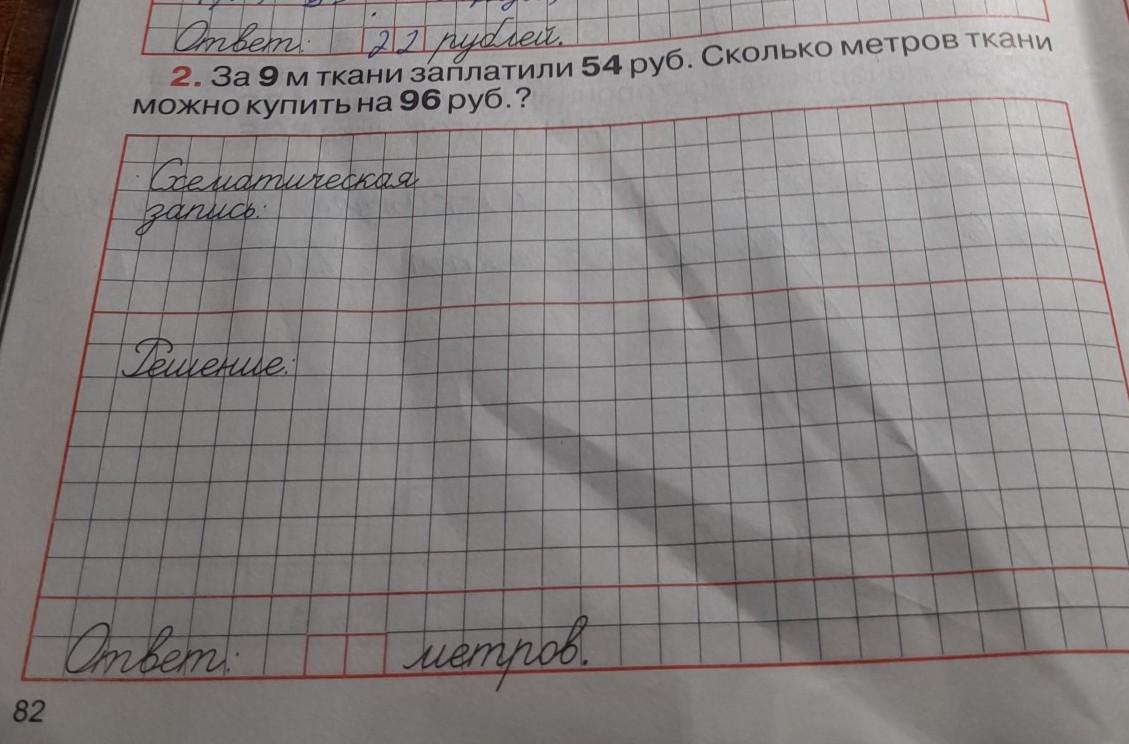 Ответ: 22 рублей.
2. За 9 м ткани заплатили 54 руб. Сколько метров ткани
можно купить на 96 руб.?
Схематическая
запись:
Решение:
Ответ: метров.
82